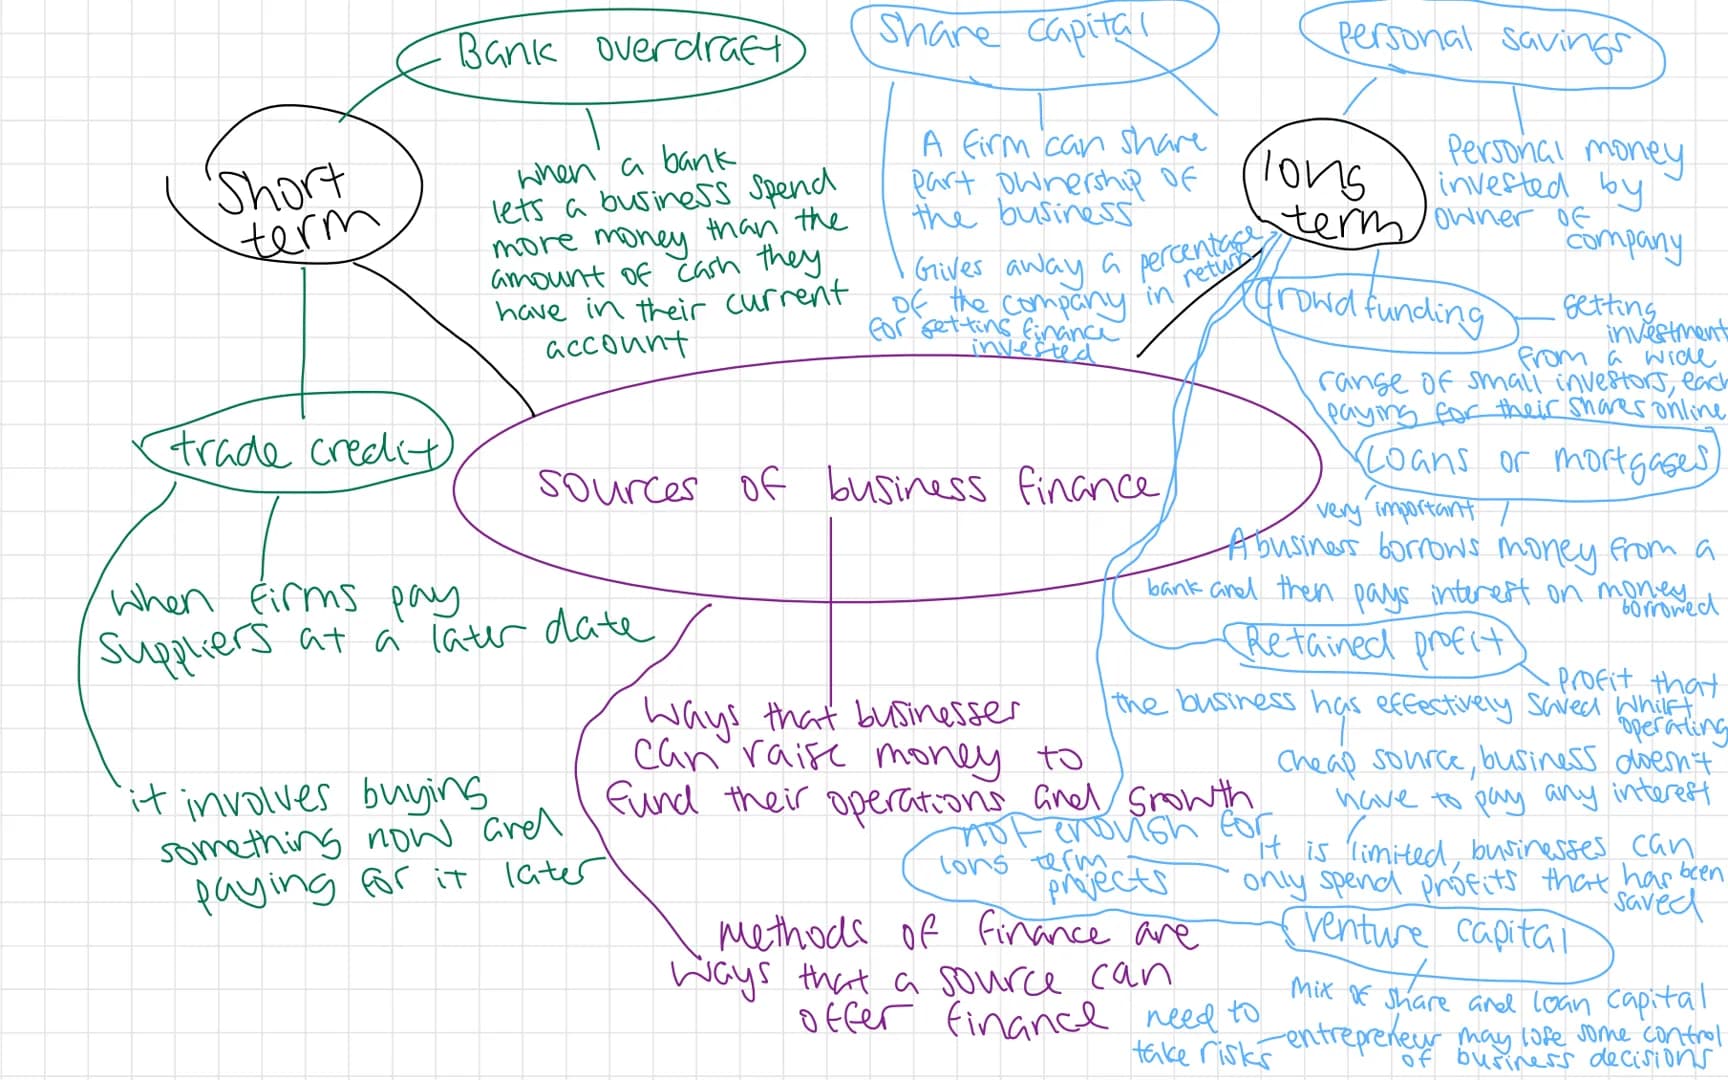 Bank overdraft
when a bank
lets a business spend
more money than the
amount of cash they
have in their current
account
short
term
trade credit
when firms pay
suppliers at a later date
it involves buying
something now and
paying for it later
sources of business finance
ways that businesses
can raise money to
fund their operations and growth
Methods of finance are
ways that a source can
offer finance
share capital
A firm can share
part ownership of
the business
Gives away a percentage
of the company in return
for getting finance
invested
personal savings
Personal money
invested by
owner of
company
long
term
Crowdfunding
Getting
investment
from a wide
range of small investors, each
paying for their shares online
Loans or mortgages
very important
A business borrows money from a
bank and then pays interest on money
borrowed
Retained profit
Profit that
the business has effectively saved whilst
operating
cheap source, business doesn't
have to pay any interest
it is limited, businesses can
only spend profits that has been
saved
not enough for
long term
projects
venture capital
Mix of share and loan capital
entrepreneur may lose some control
of business decisions
need to
take risks